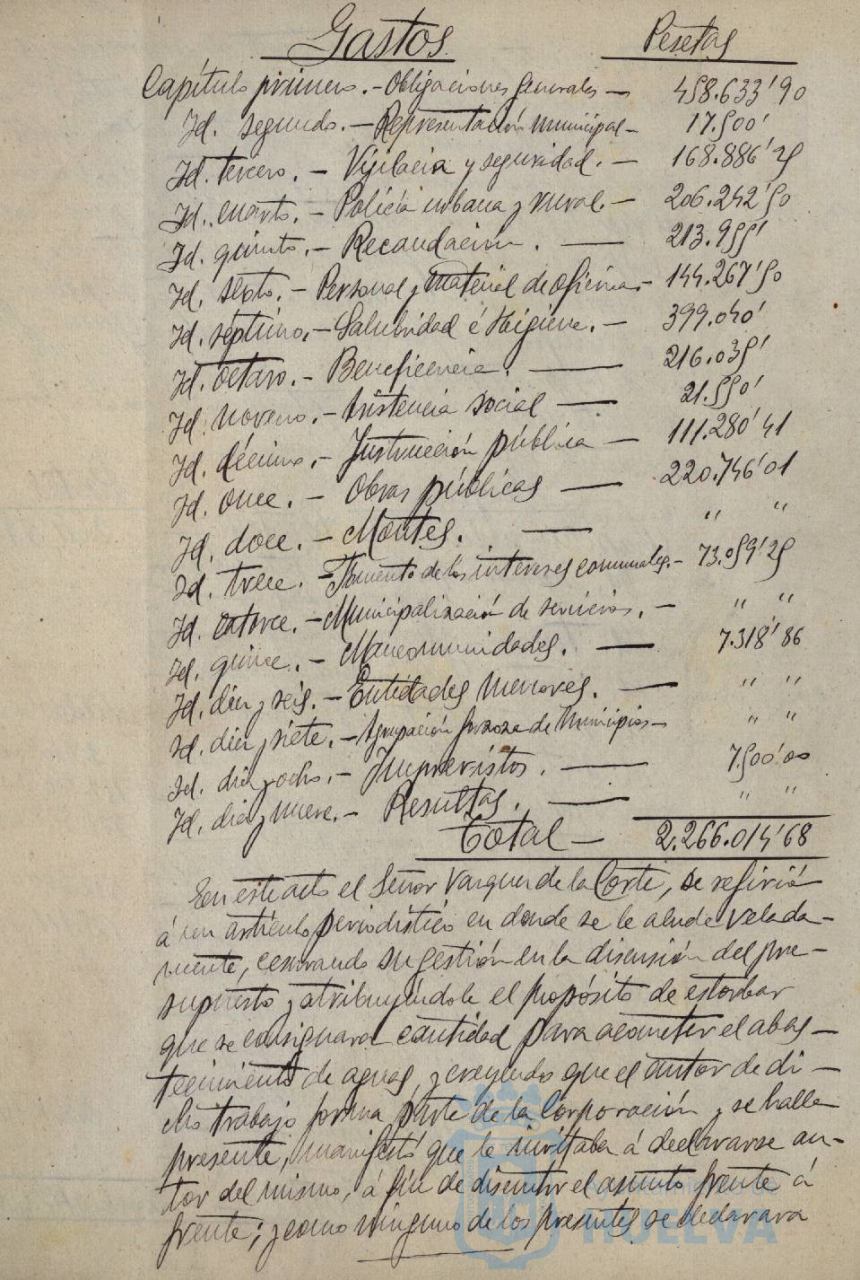 Gastos Pesetas
Capítulo primero.- Obligaciones generales — 458.633'90
Id. segundo.- Representación municipal - 17.500'
Id. tercero.- Vigilacia y seguridad. - 168.886'25
Id. cuarto.- Policía urbana y rural - 206.242'50
Id. quinto.- Recaudación. — 213.955'
Id. sexto.- Personal y material de oficinas - 144.267'50
Id. séptimo.- Salubridad é Higiene. - 399.040'
Id. octavo.- Beneficencia. — 216.035'
Id. noveno.- Asistencia social — 21.550'
Id. décimo.- Instrucción pública — 111.280'41
Id. once.- Obras públicas — 220.746'01
Id. doce.- Montes. — " "
Id. trece.- Fomento de los intereses comunales.- 73.059'25
Id. catorce.- Municipalización de servicios. - " "
Id. quince.- Mancomunidades. — 7.318'86
Id. diez y seis.- Entidades menores. — " "
Id. diez y siete.- Agrupación forzosa de Municipios - " "
Id. diez y ocho.- Imprevistos. — 7.500'00
Id. diez y nueve.- Resultas. — " "
Total — 2.266.014'68
En este acto el Señor Vazquez de la Corte, se refirió
á un artículo periodístico en donde se le alude velada-
mente, censurando su gestión en la discusión del pre-
supuesto y atribuyéndole el propósito de estorbar
que se consignara cantidad para acometer el abas-
tecimiento de aguas, y creyendo que el autor de di-
cho trabajo forma parte de la Corporación y se halla
presente, manifestó que le invitaba á declararse au-
tor del mismo, á fin de discutir el asunto frente á
frente; y como ninguno de los presentes se declarara
HUELVA